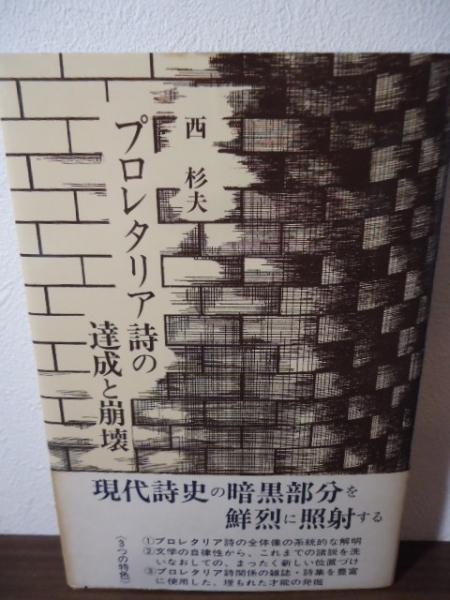 西 杉夫
プロレタリア詩の
達成と崩壊
現代詩史の暗黒部分を
鮮烈に照射する
〈3つの特色〉
①プロレタリア詩の全体像の系統的な解明
②文学の自律性から、これまでの諸説を洗
いなおしての、まったく新しい位置づけ
③プロレタリア詩関係の雑誌・詩集を豊富
に使用した、埋もれた才能の発掘